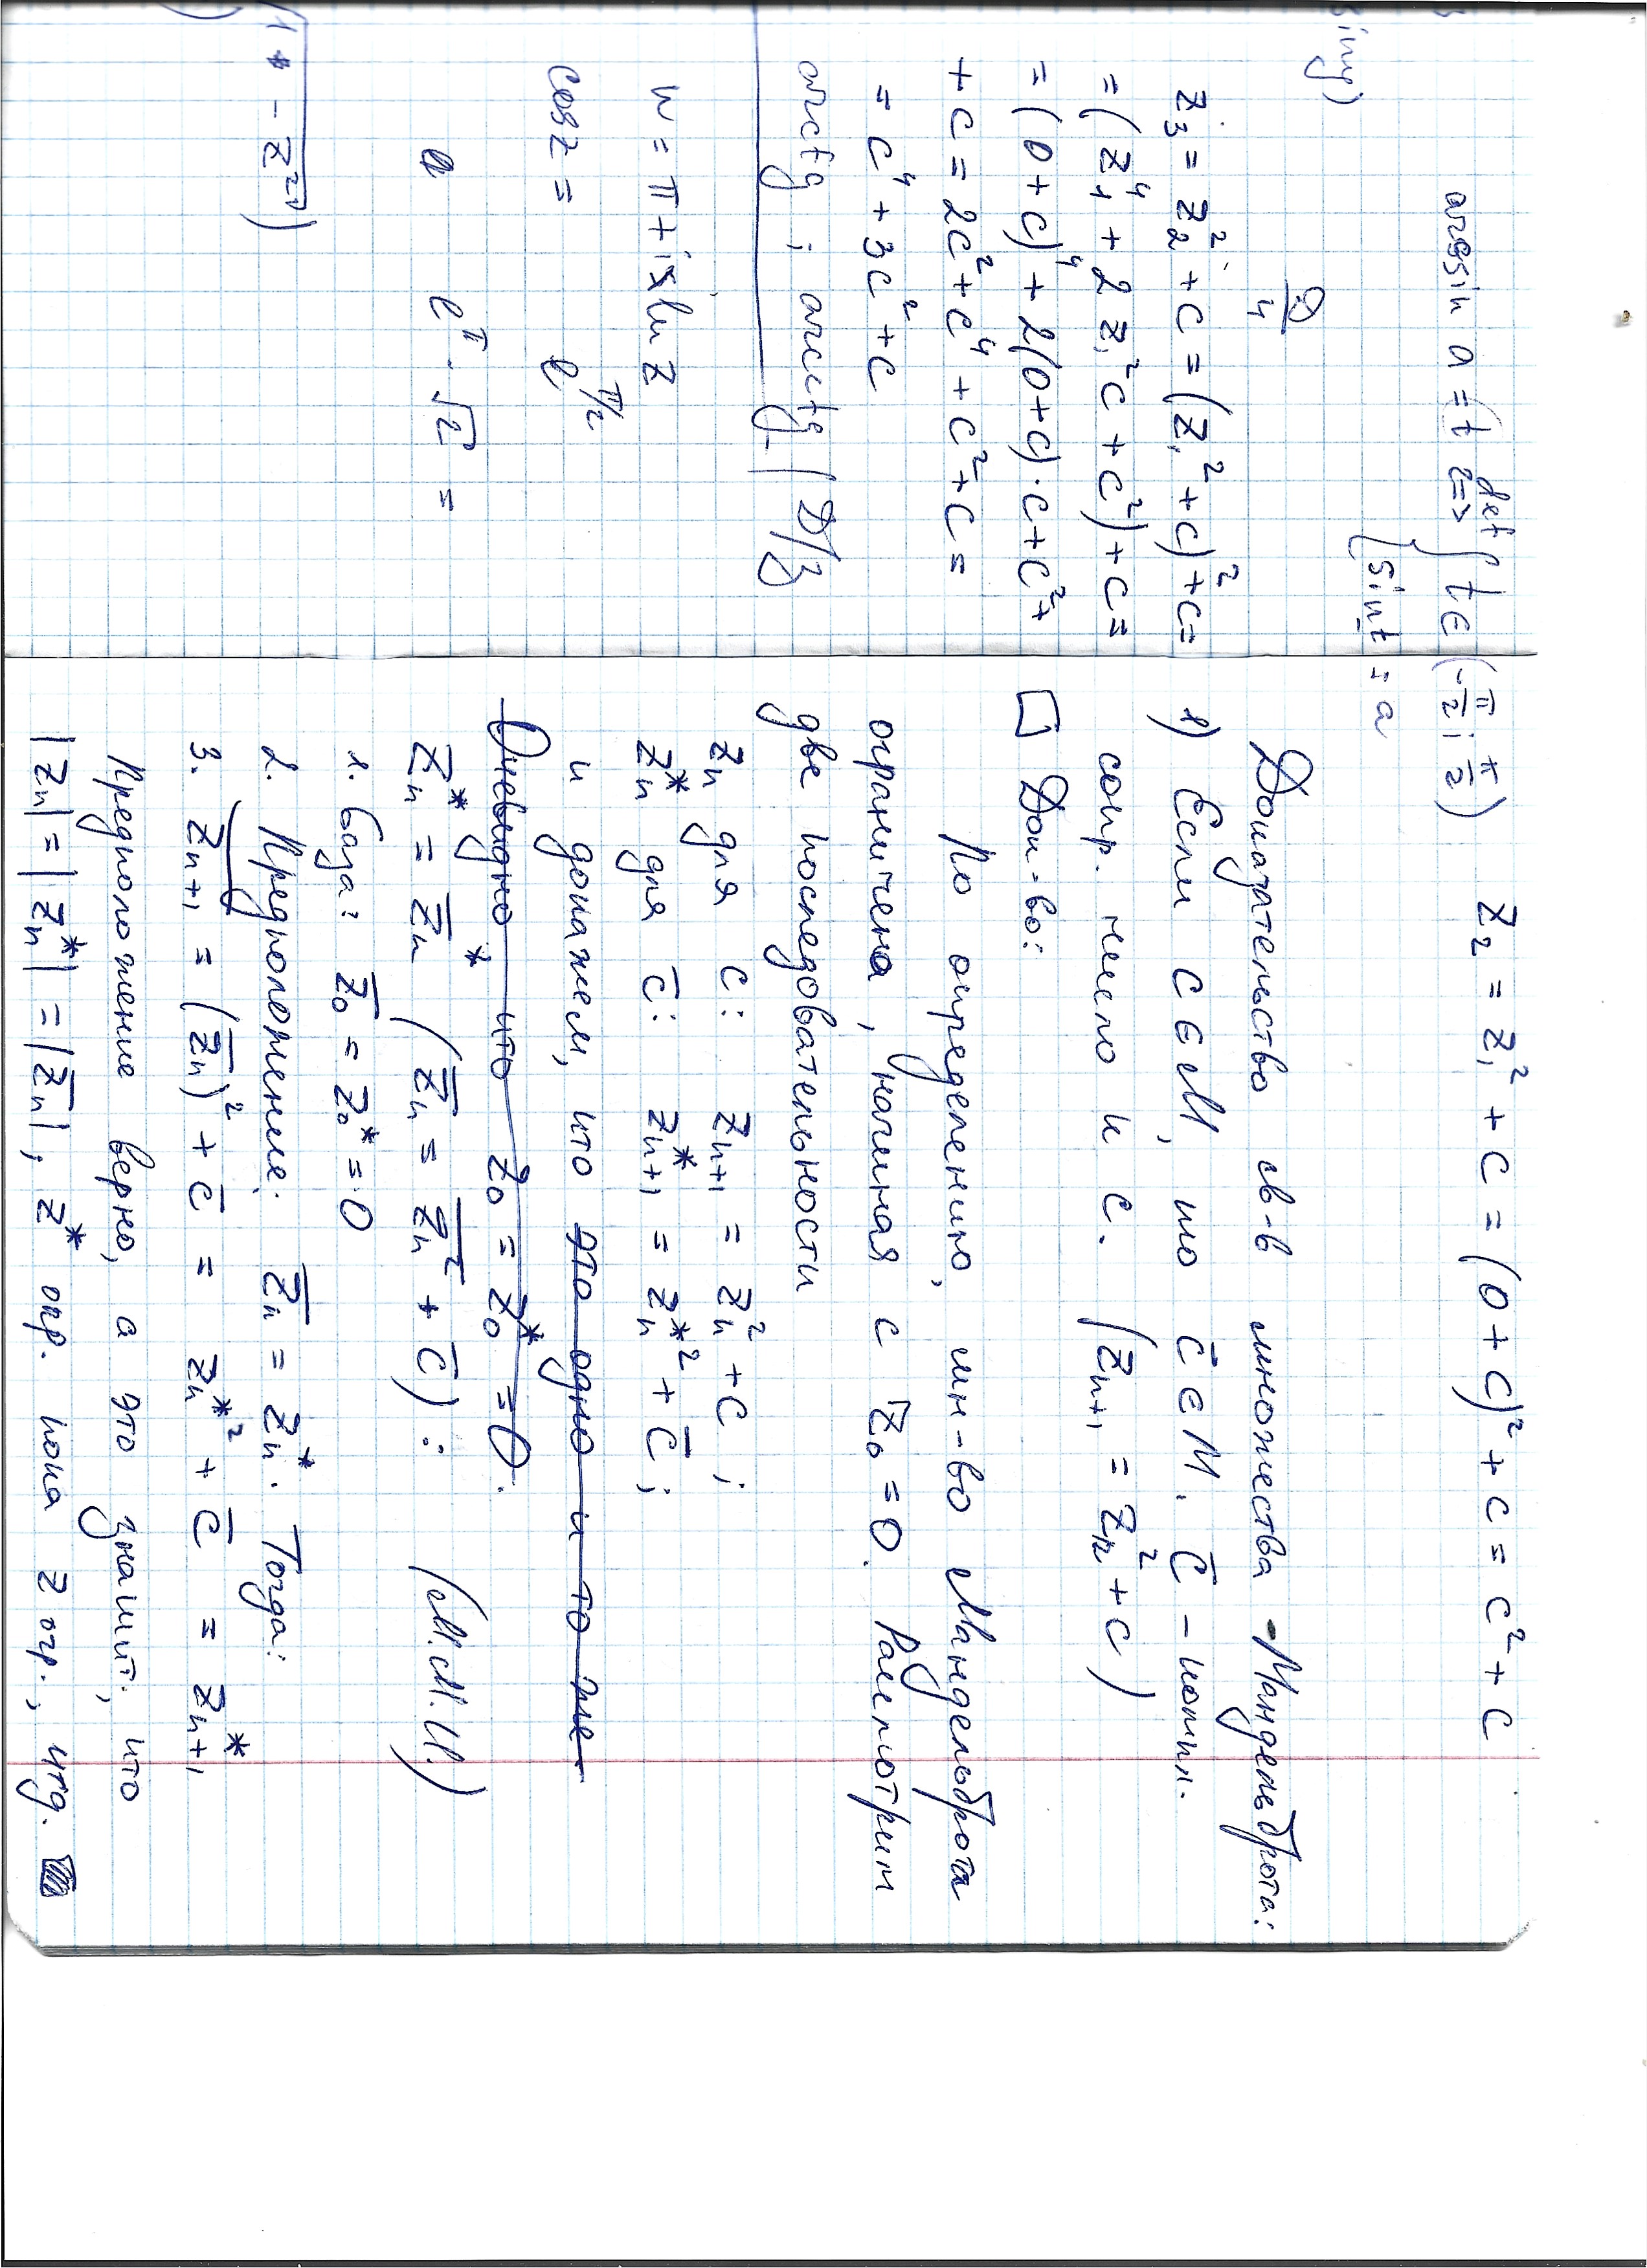 sinφ)
arcsin a = t def <=> { t ∈ (-π/2; π/2)
{ sin t = a
z₃ = z₂² + c = (z₁² + c)² + c =
= (z₁⁴ + 2z₁²c + c²) + c =
= (0+c)⁴ + 2(0+c)·c + c² +
+ c = 2c² + c⁴ + c² + c =
= c⁴ + 3c² + c
arctg ; arcctg | Д/З
w = π + i × ln z
cos z = e^(π/2)
e^π · √2 =
- z²)
z₂ = z₁² + c = (0 + c)² + c = c² + c
Доказательство св-в множества Мандельброта:
1) Если c ∈ M, то c̅ ∈ M. c̅ - компл.
сопр. число к c. (zₙ₊₁ = zₙ² + c)
□ Док-во:
По определению, мн-во Мандельброта
ограничена, начиная с z₀ = 0. Рассмотрим
две последовательности
zₙ для c: zₙ₊₁ = zₙ² + c ;
zₙ* для c̅: zₙ₊₁* = zₙ*² + c̅ ;
и докажем, что это одно и то же
Очевидно что z₀ = z₀* = 0.
zₙ* = z̅ₙ* (z̅ₙ = z̅ₙ² + c̅) : (М.М.И.)
1. база: z̅₀ = z₀* = 0
2. Предположение: z̅ₙ = zₙ*. Тогда:
3. z̅ₙ₊₁ = (z̅ₙ)² + c̅ = zₙ*² + c̅ = zₙ₊₁*
Предположение верно, а это значит, что
|zₙ| = |zₙ*| = |z̅ₙ|, z* огр. пока z огр., чтд.